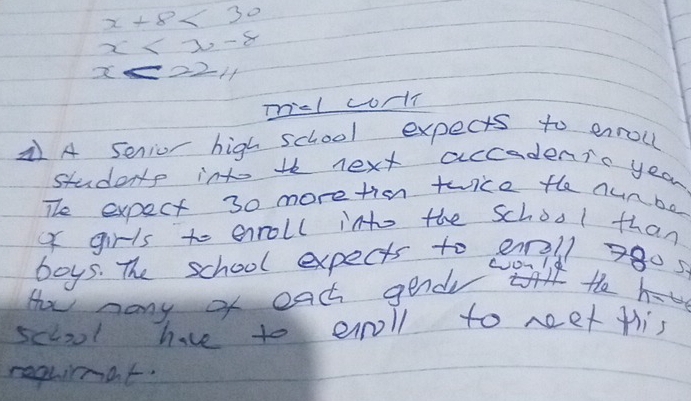 x + 8 < 30
x < 30 - 8
x < 22 //
Trial work
1) A Senior high school expects to enroll
students into the next accademic year
The expect 30 more than twice the number
of girls to enroll into the school than
boys. The school expects to enroll 780
How many of each gender would the
school have to enroll to meet this
requirment.